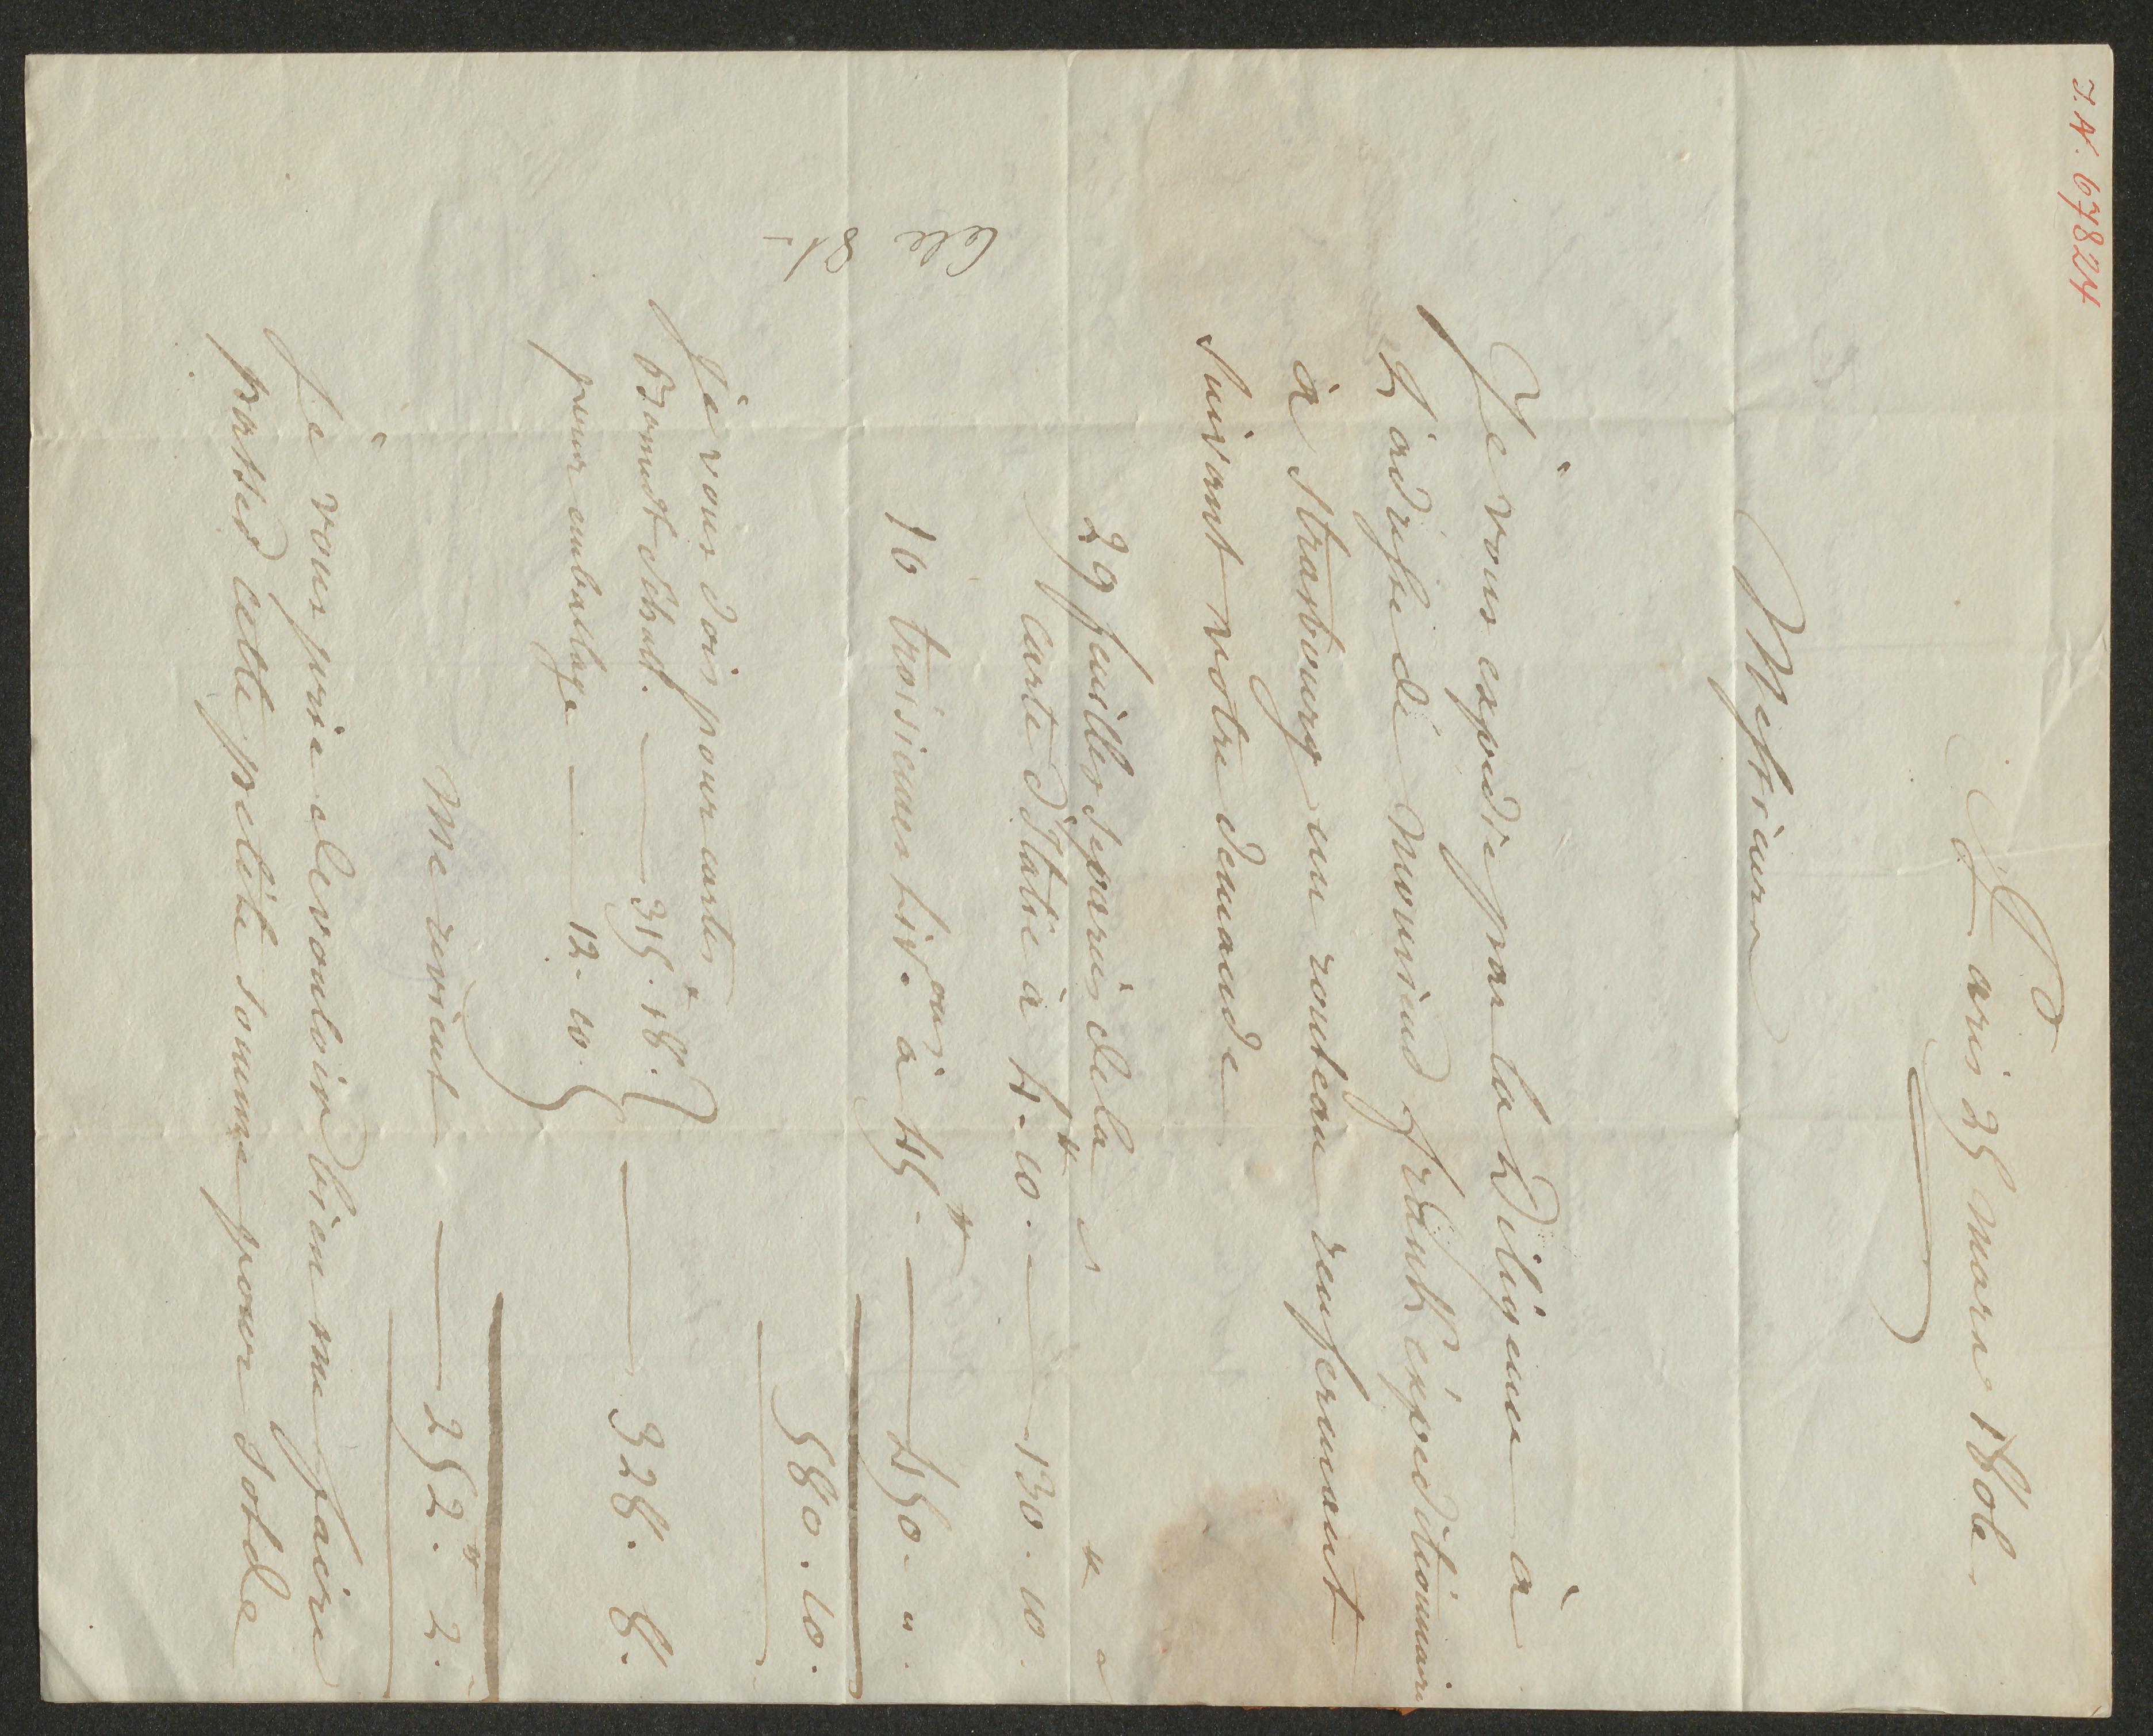 J.N. 67824
Paris 25 mars 1806
Messieurs
Je vous expedie par la Diligence à
L'adresse de Monsieur frank expeditionnaire
à Strasbourg un rouleau renfermant
Suivant votre demande
29 feuilles separées de la
carte d'Italie à 4.# 10. — 130. 10.
10 troisiemes Liv.ons à 45.# — 450. "
580. 10.
Je vous dois pour cartes
315.# 18.
pour emballage — 12. 10. } — 328. 8.
Me revient — 252.# 2.
Je vous prie de vouloir bien me faire
passer cette petite somme pour solde